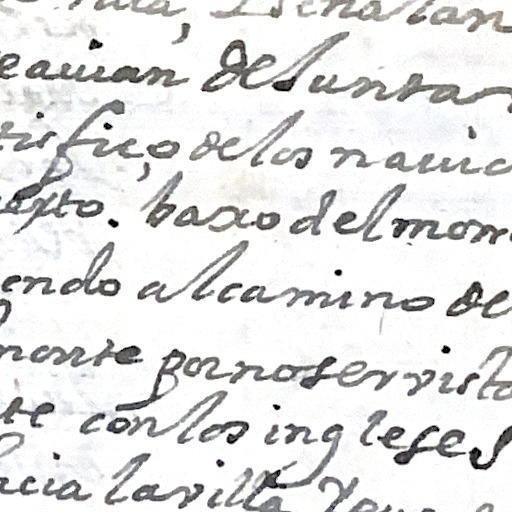 señalan
eauian de Juntar
tisfiço de los nauic
uexto. baxo del mon
endo al camino de
monte por no ser visto
te con los ingleses
hacia la villa